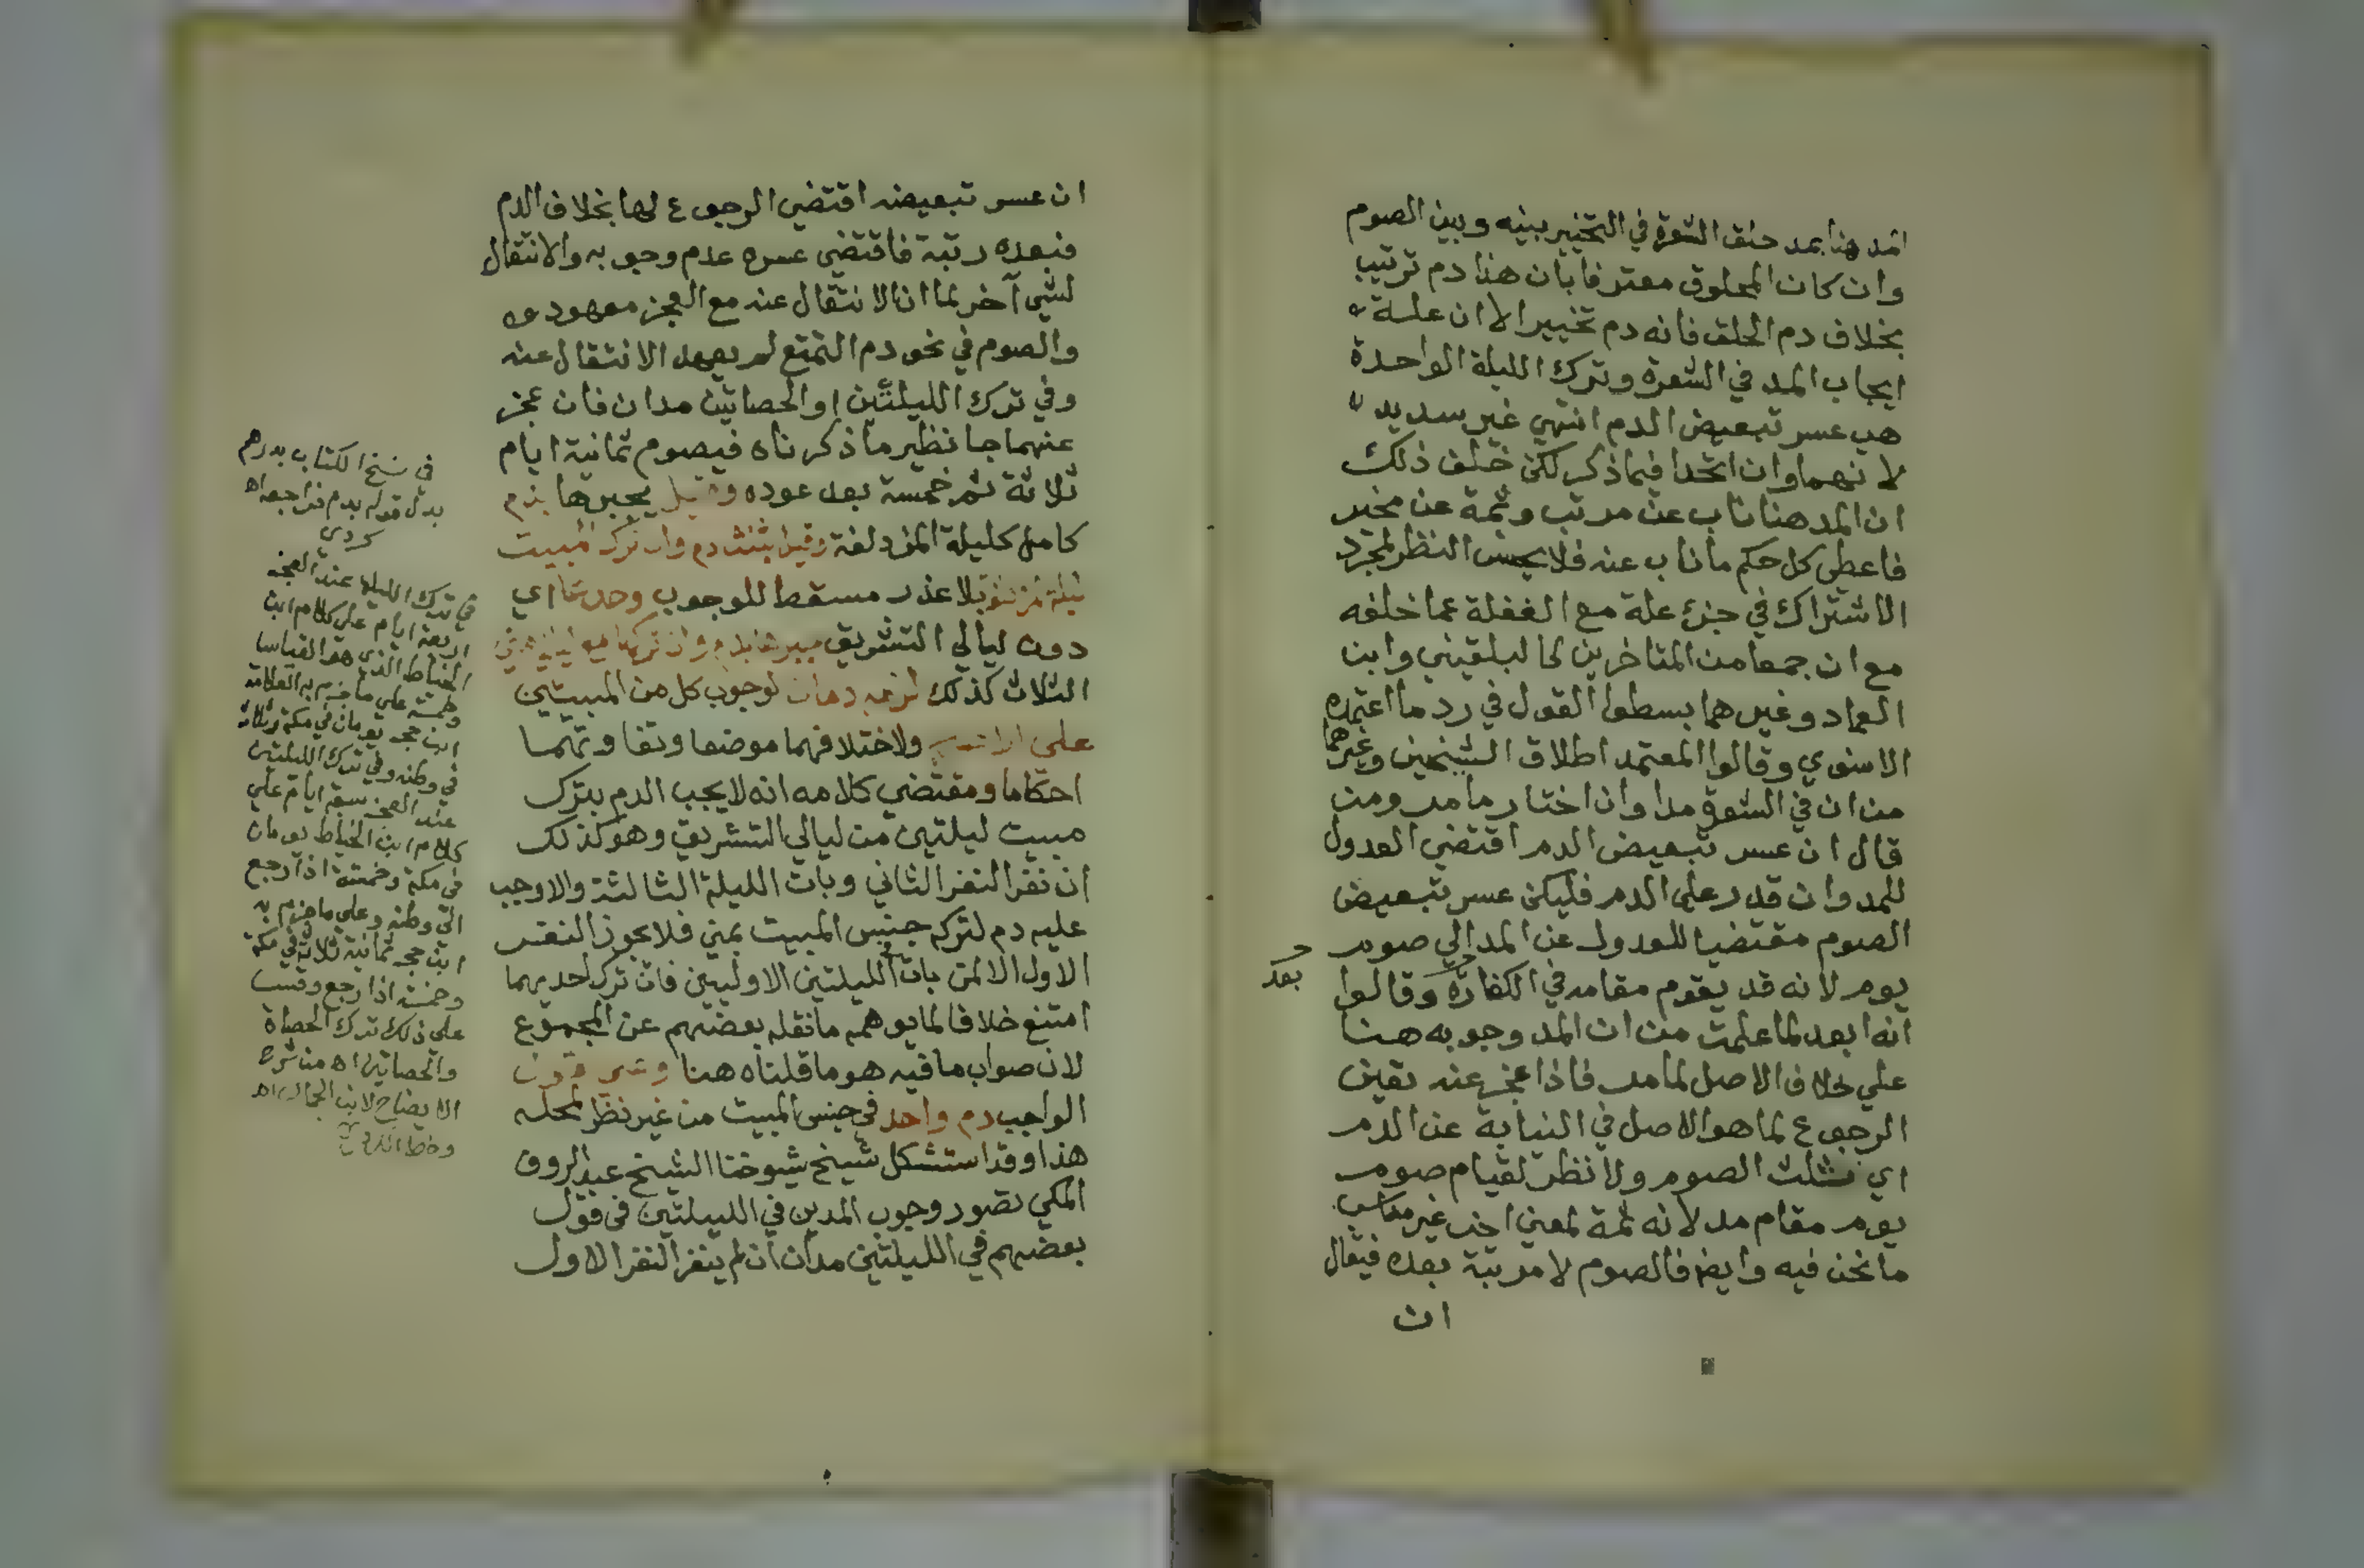 المد هنا بمد حلق الشعرة في التخيير بينه وبين الصوم
وان كان المحلوق معترفا بان هنا دم ترتيب
بخلاف دم الحلق فانه دم تخيير الا ان علة
ايجاب المد في الشعرة وترك الليلة الواحدة
هي عسر تبعيض الدم انتهي غير سديد
لانهما وان اتحدا فيما ذكر لكن خلف ذلك
ان المد هنا ناب عن مرتب وثمة عن مخير
فاعطي كل حكم ما ناب عنه فلا يحسن النظر لمجرد
الاشتراك في جزء علة مع الغفلة عما خلفه
مع ان جمعا من المتاخرين كالبلقيني وابن
العماد وغيرهما بسطوا القول في رد ما اعتمده
الاسنوي وقالوا المعتمد اطلاق الشيخين وغيرهما
من ان في الشعرة مدا وان اختار ما مر ومن
قال ان عسر تبعيض الدم اقتضي العدول
للمد وان قدر علي الدم فليكن عسر تبعيض
الصوم مقتضيا للعدول عن المد الي صوم
يوم لانه قد يقوم مقامه في الكفارة وقالوا
بعد
انه ابعد لما علمت من ان المد وجوبه هنا
علي خلاف الاصل لما مر فاذا عجز عنه تعين
الرجوع لما هو الاصل في النيابة عن الدم
اي ثلث الصوم ولا نظر لقيام صوم
يوم مقام مد لانه ثمة لمعني اجنبي غير مناسب
ما نحن فيه وايضا فالصوم لا مرتبة بعده فيقال
ان
ان عسر تبعيضه اقتضي الرجوع لها بخلاف الدم
فبعده رتبة فاقتضي عسره عدم وجوبه والانتقال
لشي آخر لما ان الانتقال عنه مع العجز معهود
والصوم في نحو دم التمتع لم يعهد الانتقال عنه
وفي ترك الليلتين او الحصاتين مدان فان عجز
عنهما جا نظير ما ذكرناه فيصوم ثمانية ايام
ثلاثة ثم خمسة بعد عوده وقيل يجبرها بدم
كامل كليلة المزدلفة وقيل بثلث دم وان ترك المبيت
ليلة مزدلفة بلا عذر مسقط للوجوب وحدها اي
دون ليالي التشريق جبرها بدم وان تركها مع ليالي مني
الثلاث كذلك لزمه دمان لوجوب كل من المبيتين
علي ولاختلافهما موضعا وتفاوتهما
احكاما ومقتضي كلامه انه لا يجب الدم بترك
مبيت ليلتين من ليالي التشريق وهو كذلك
ان نفر النفر الثاني وبات الليلة الثالثة والا وجب
عليه دم لتركه جنس المبيت بمني فلا يجوز النفر
الاول الا لمن بات الليلتين الاوليين فان ترك احديهما
امتنع خلافا لما يوهمه ما نقله بعضهم عن المجموع
لان صواب ما فيه هو ما قلناه هنا وفي قول
الواجب دم واحد في جنس المبيت من غير نظر لمحله
هذا وقد استشكل شيخ شيوخنا الشيخ عبد الروف
المكي تصور وجوب المدين في الليلتين في قول
بعضهم في الليلتين مدان ان لم ينفر النفر الاول
في نسخ الكتاب بدرهم
بدل قوله بدم فراجعه اه
كردي
في ترك الليلة عند العجز
اربعة ايام علي كلام ابن
الخياط الذي هو القياس
وخمسة علي ما جزم به العلامة
ابن حجر يومان في مكة وثلاثة
في وطنه وفي ترك الليلتين
عند العجز سبعة ايام علي
كلام ابن الخياط يومان
في مكة وخمسة اذا رجع
الي وطنه وعلي ما جزم به
ابن حجر ثمانية ثلاثة في مكة
وخمسة اذا رجع وقس
علي ذلك ترك الحصاة
والحصاتين اه من شرح
الايضاح لابن الجمال اه